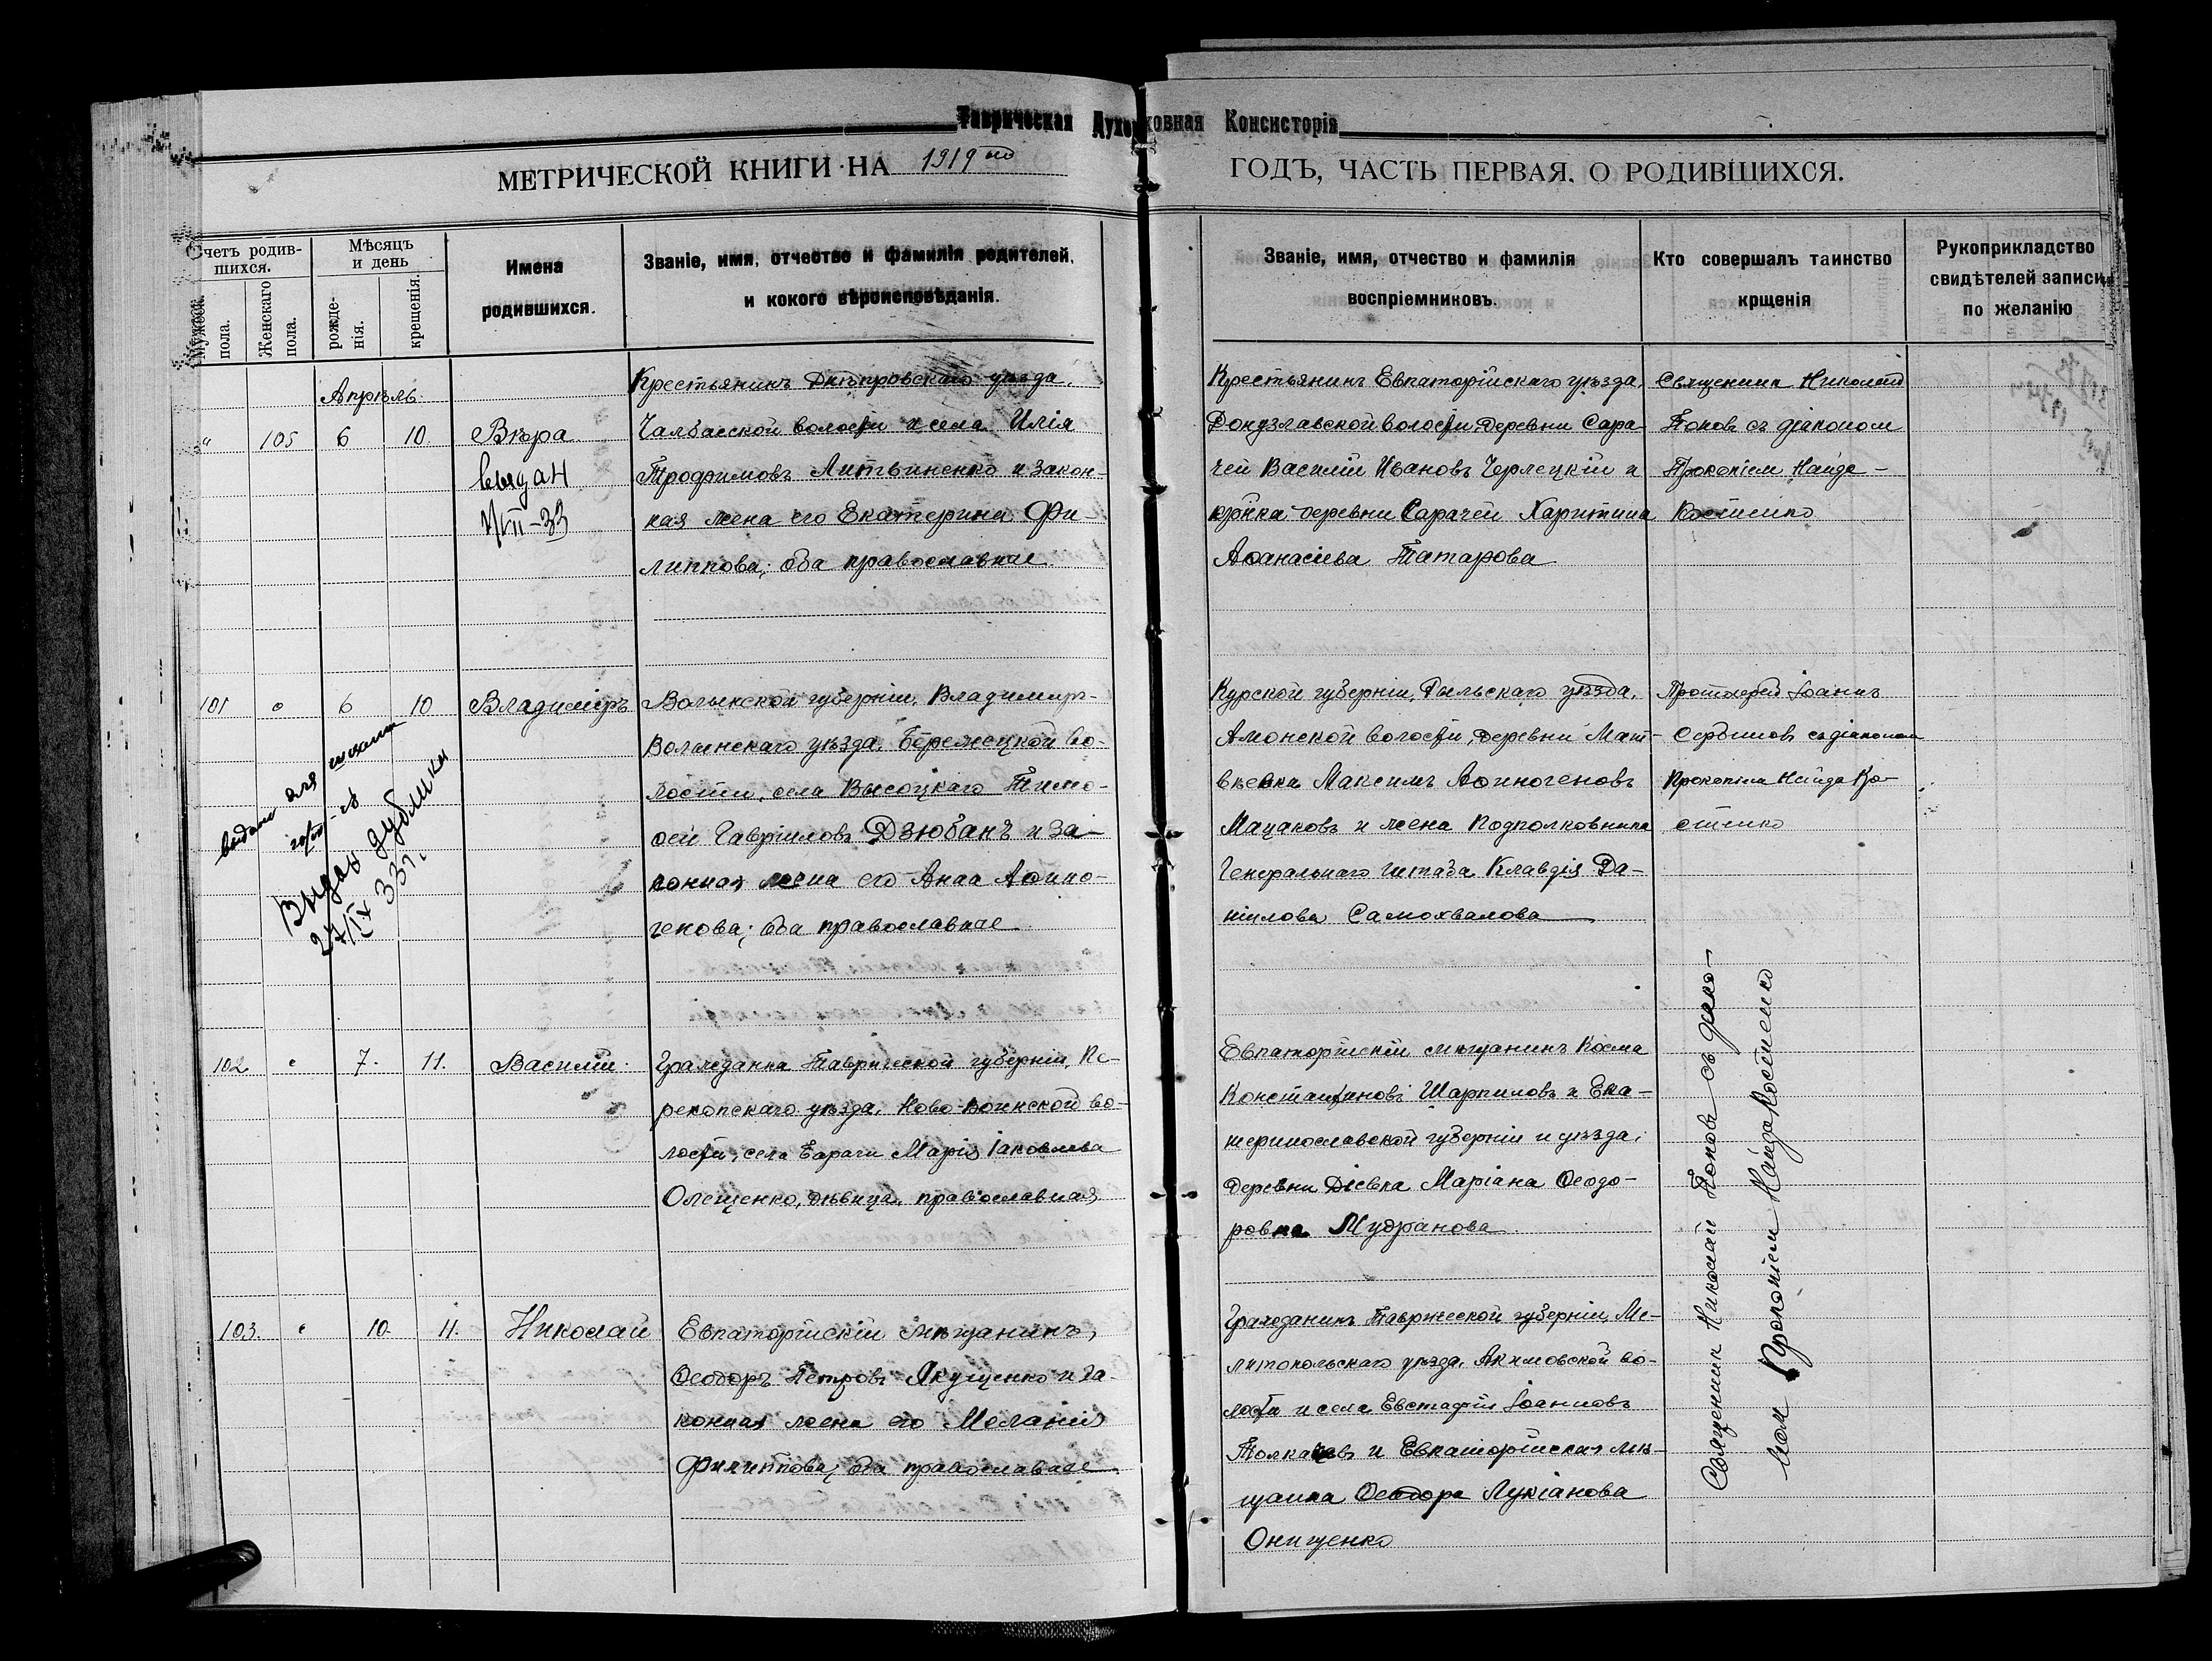 Таврическая Духовная Консисторія
МЕТРИЧЕСКОЙ КНИГИ НА 1919 ый ГОДЪ, ЧАСТЬ ПЕРВАЯ. О РОДИВШИХСЯ.
Счетъ родив-
шихся.
Мужеск.
пола.
Женскаго
пола.
Мѣсяцъ
и день
рожде-
нія.
крещенія.
Имена
родившихся.
Званіе, имя, отчество и фамилія родителей,
и кокого вѣроисповѣданія.
Званіе, имя, отчество и фамилія
воспріемниковъ.
Кто совершалъ таинство
крщенія
Рукоприкладство
свидѣтелей записи
по желанію
Апрѣль.
" 105 6 10 Вѣра
выдан
Крестьянинъ Днѣпровскаго уѣзда,
Чалбасской волости и села Илія
Трофимовъ Литвиненко и закон-
ная жена его Екатерина Фи-
липпова; оба православные.
Крестьянинъ Евпаторійскаго уѣзда,
Донузлавской волости, деревни Сара-
чей Василій Ивановъ Черлецкій и
кр̃нка деревни Сарачей Харитина
Аѳанасіева Татарова
Священникъ Николай
Поповъ съ діакономъ
Прокопіем Найде-
Костенко
101 " 6 10 Владиміръ
выдан для
Выдан дубликат
27/IX 33 г.
Волынской губерніи, Владимир-
Волынскаго уѣзда, Бережецкой во-
лости, села Высоцкаго Тимо-
ѳей Гавріиловъ Дзюбанъ и за-
конная жена его Анна Аѳино-
генова; оба православные
Курской губерніи, Рыльскаго уѣзда,
Амонской волости, деревни Мат-
вѣевки Максимъ Аѳиногеновъ
Мацаковъ и жена подполковника
Генеральнаго штаба Клавдія Да-
ніилова Самохвалова
Протоіерей Іоаннъ
Сербиновъ съ діакономъ
Прокопіем Найда Ко-
стенко
102 " 7. 11. Василій.
Гражданка Таврической губерніи, Пе-
рекопскаго уѣзда, Ново-Воинской во-
лости, села Марія Іаковлева
Олещенко, дѣвица, православная
Евпаторійскій мѣщанинъ Косма
Константиновъ Шарпиловъ и Ека-
теринославской губерніи и уѣзда,
деревни Діевка Маріана Ѳеодо-
ровна Мудранова
103. " 10. 11. Николай
Евпаторійскій мѣщанинъ,
Ѳеодоръ Петровъ Якущенко и за-
конная жена его Меланія
Филиппова; оба православные
Гражданинъ Таврической губерніи, Ме-
литопольскаго уѣзда, Акимовской во-
лости и села Евстафій Іоанновъ
Толкачевъ и Евпаторійская мѣ-
щанка Ѳеодора Лукіанова
Онищенко
Священник Николай Поповъ съ діако-
ном Прокопіем Найда Костенко